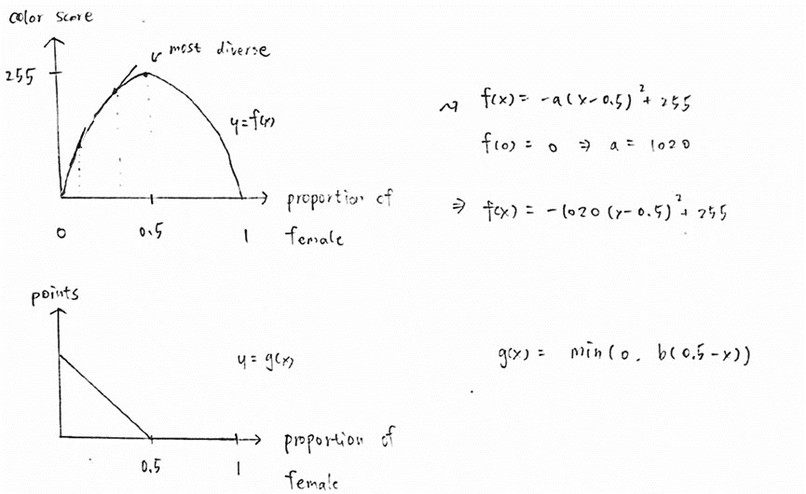 color score
most diverse
255
y=f(x)
proportion of
female
0
0.5
1
⇝ f(x) = -a(x-0.5)² + 255
f(0) = 0 ⇒ a = 1020
⇒ f(x) = -1020(x-0.5)² + 255
points
y = g(x)
g(x) = min(0, b(0.5-x))
proportion of
female
0.5
1